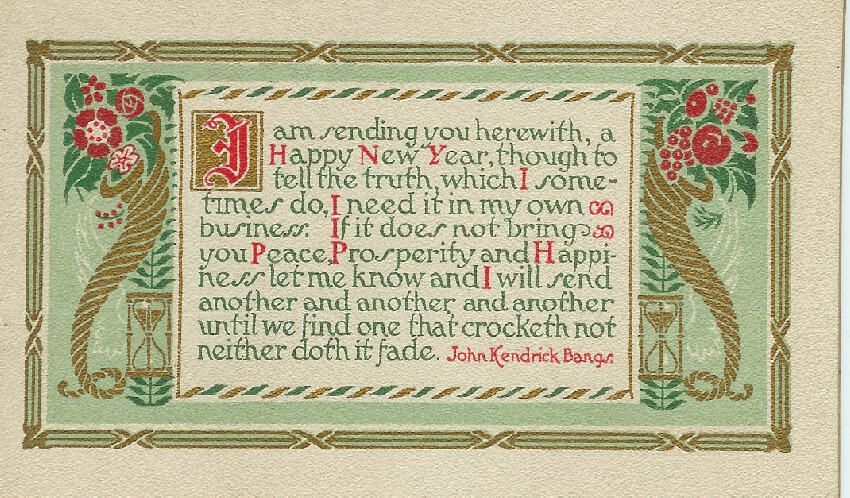 I am sending you herewith, a
Happy New Year, though to
tell the truth, which I some-
times do, I need it in my own
business. If it does not bring
you Peace, Prosperity and Happi-
ness let me know and I will send
another and another, and another
until we find one that crocketh not
neither doth it fade. John Kendrick Bangs.